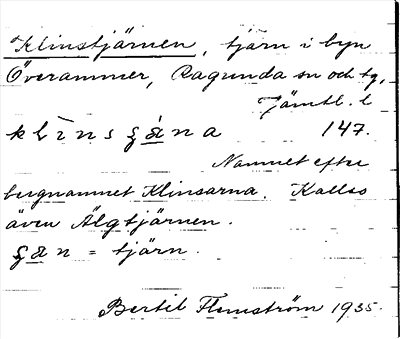 Klinstjärnen, tjärn i byn
Överammer, Ragunda sn och tg,
Jämtl. l
klinsgäna 147.
Namnet efter
bergnamnet Klinsarna. Kallas
även Älgtjärnen.
gän = tjärn.
Bertil Flemström 1935.